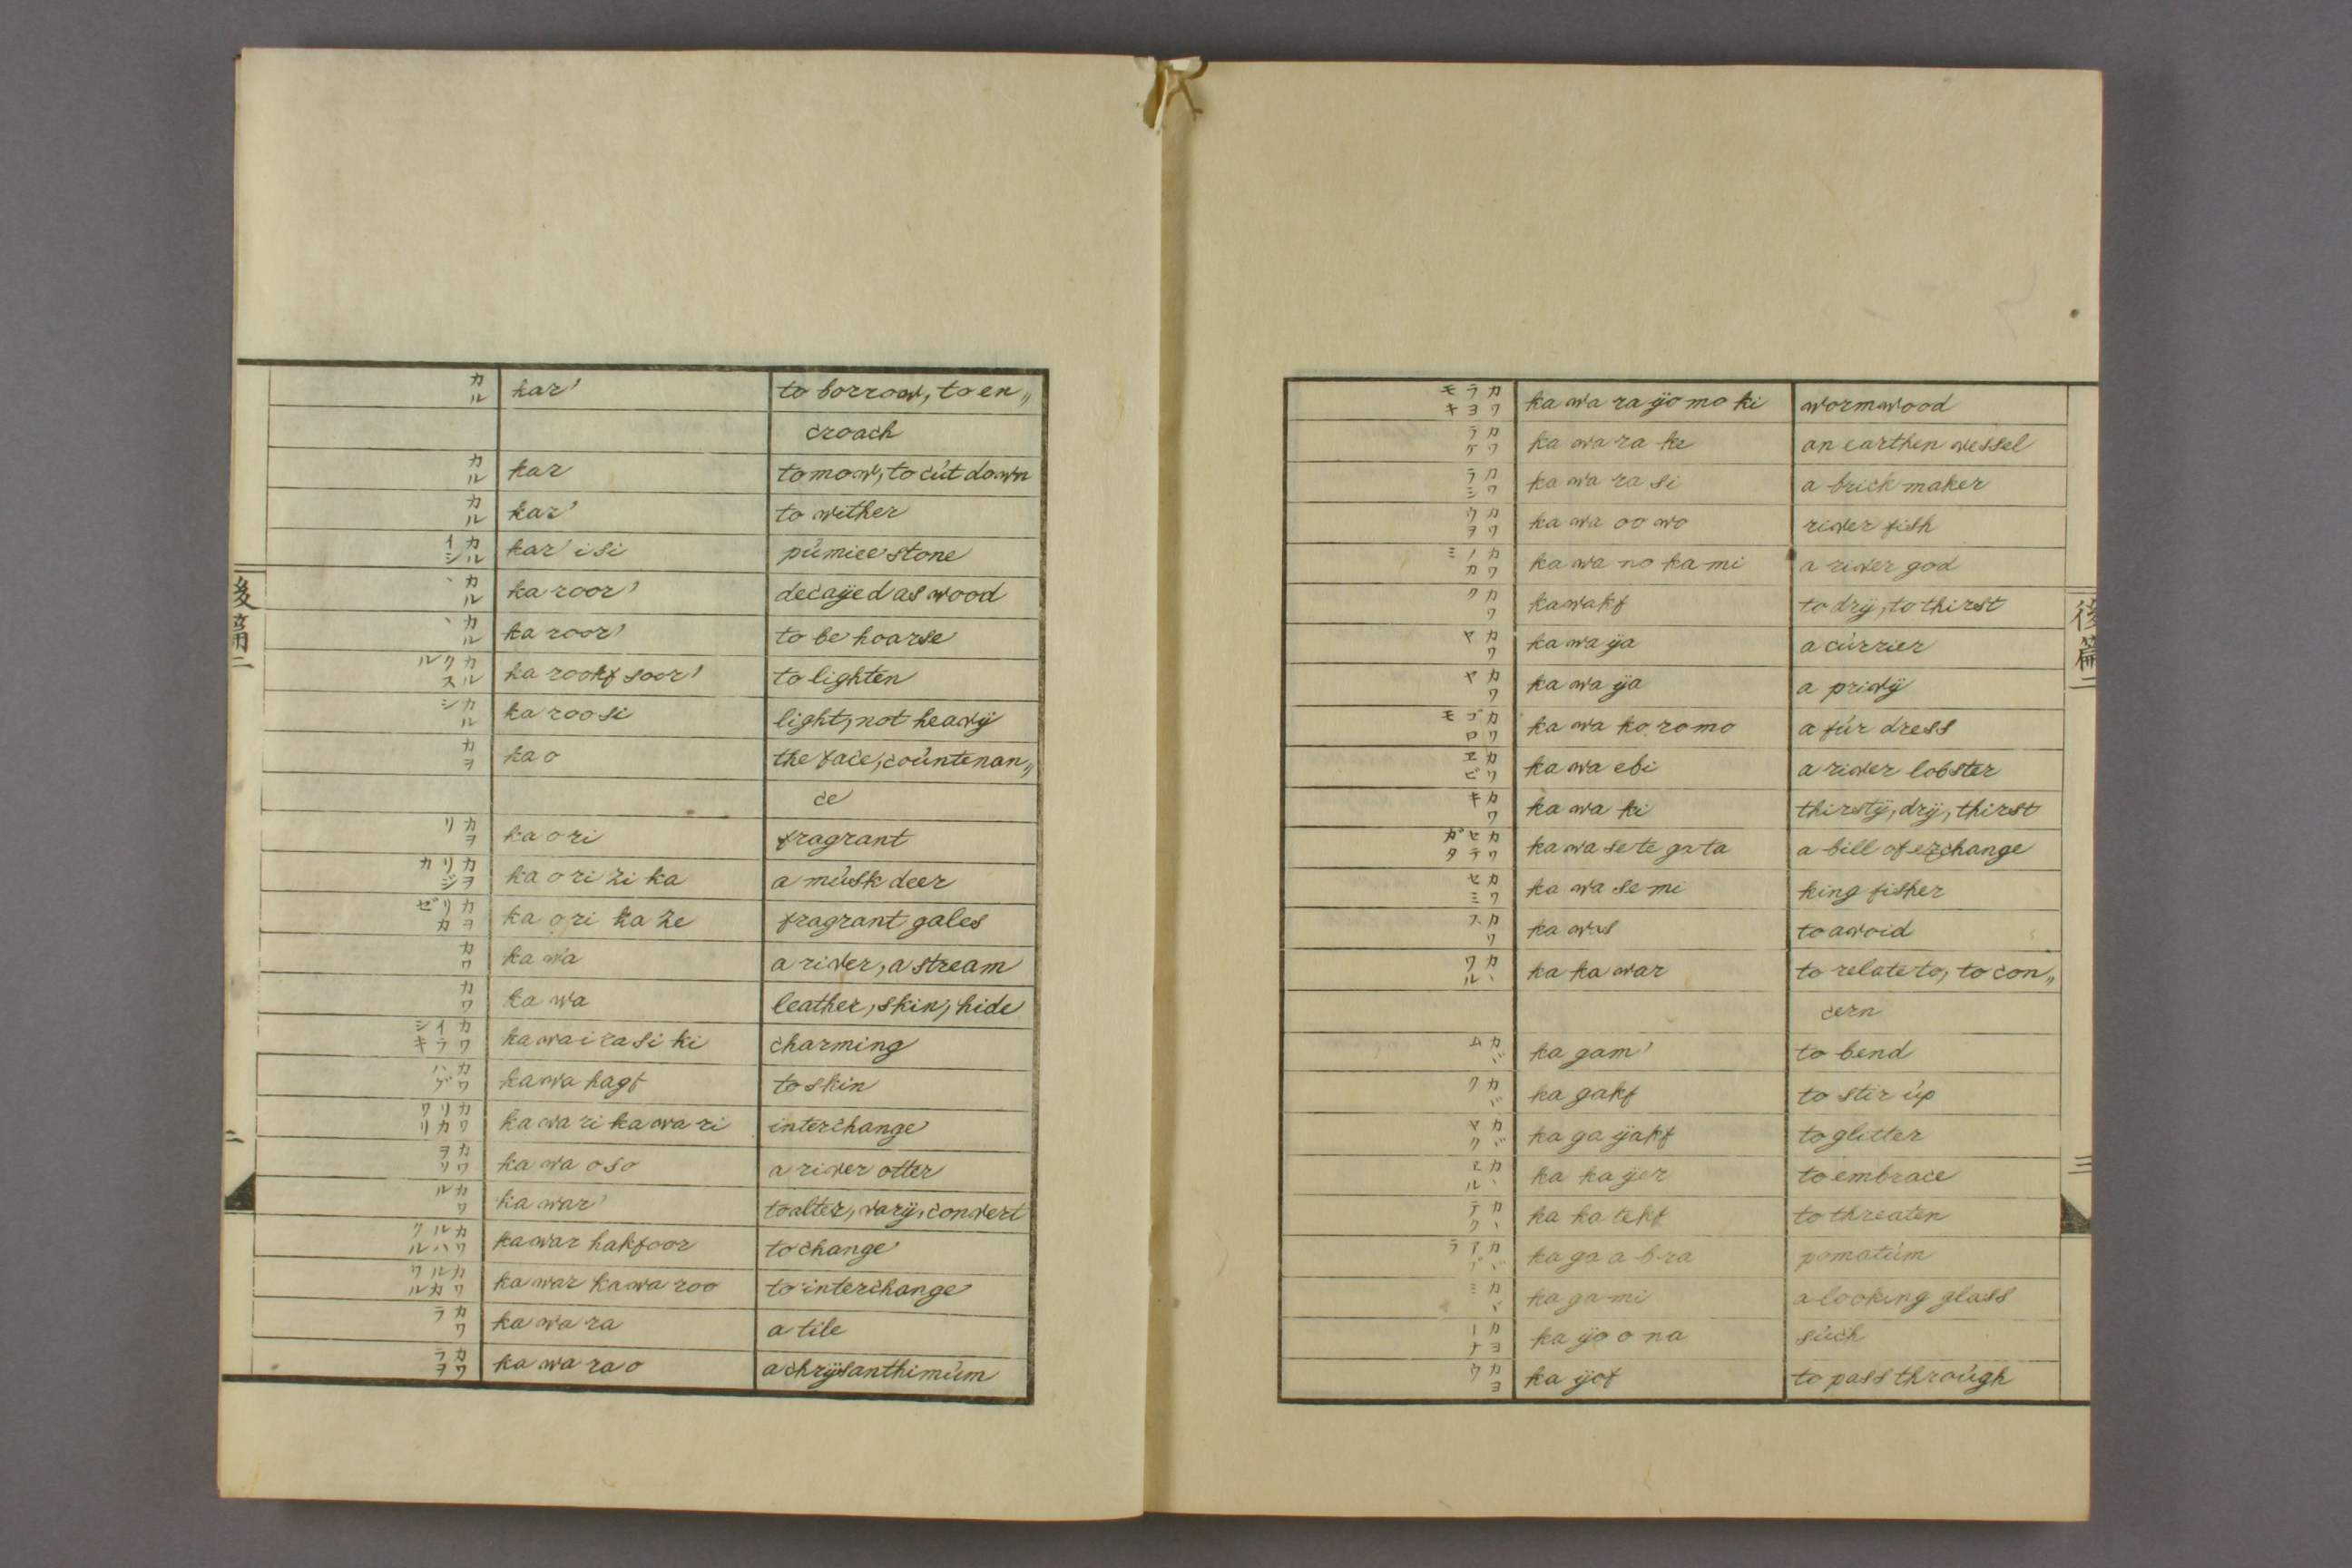 カル kar' to borrow, to en〃
croach
カル kar to mow, to cut down
カル kar' to wither
カルイシ kar' isi pumice stone
カルヽ ka roor' decayed as wood
カルヽ ka roor' to be hoarse
カルクスル ka rookf soor' to lighten
カルシ ka roo si light, not heavy
カヲ ka o the face, countenan〃
ce
カヲリ ka o ri fragrant
カヲリジカ ka o ri zi ka a musk deer
カヲリカゼ ka o ri ka ze fragrant gales
カワ ka wa a river, a stream
カワ ka wa leather, skin, hide
カワイラシキ ka wa i ra si ki charming
カワハグ ka wa hagf to skin
カワリカワリ ka wa ri ka wa ri interchange
カワヲソ ka wa o so a river otter
カワル ka war' to alter, vary, convert
カワルハクル kawar hakfoor to change
カワルカワル ka war ka wa roo to interchange
カワラ ka wa ra a tile
カワラヲ ka wa ra o a chrysanthimum
後篇二
二
カワラヨモキ ka wa ra yo mo ki wormwood
カワラケ ka wa ra ke an earthen vessel
カワラシ ka wa ra si a brick maker
カワウヲ ka wa oo wo river fish
カワノカミ ka wa no ka mi a river god
カワク kawakf to dry, to thirst
カワヤ ka wa ya a currier
カワヤ ka wa ya a privy
カワゴロモ ka wa ko ro mo a fur dress
カワヱビ ka wa ebi a river lobster
カワキ ka wa ki thirsty, dry, thirst
カワセテガタ ka wa se te ga ta a bill of exchange
カワセミ ka wa se mi king fisher
カワス ka was to avoid
カヽワル ka ka war to relate to, to con〃
cern
カヾム ka gam' to bend
カヾク ka gakf to stir up
カヾヤク ka ga yakf to glitter
カヽヱル ka ka yer to embrace
カヽテク ka ka tekf to threaten
カヾアブラ ka ga a b ra pomatum
カヾミ ka ga mi a looking glass
カヨーナ ka yo o na such
カヨウ ka yof to pass through
後篇二
三